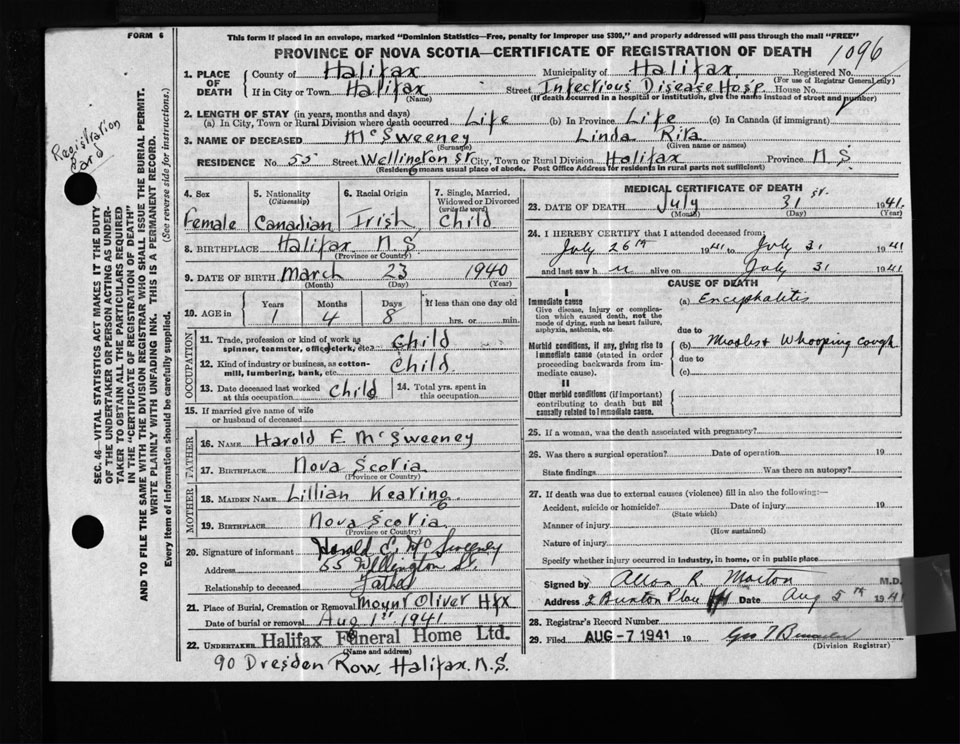 FORM 6
This form if placed in an envelope, marked "Dominion Statistics—Free, penalty for improper use $300," and properly addressed will pass through the mail "FREE"
PROVINCE OF NOVA SCOTIA—CERTIFICATE OF REGISTRATION OF DEATH
1096
1. PLACE OF DEATH
County of Halifax Municipality of Halifax Registered No.
(For use of Registrar General only)
If in City or Town Halifax Street Infectious Disease Hosp House No.
(Name) (If death occurred in a hospital or institution, give the name instead of street and number)
2. LENGTH OF STAY (in years, months and days)
(a) In City, Town or Rural Division where death occurred Life (b) In Province Life (c) In Canada (if immigrant)
3. NAME OF DECEASED McSweeney Linda Rita
(Surname) (Given name or names)
RESIDENCE No. 55 Street Wellington St City, Town or Rural Division Halifax Province N.S
(Residence means usual place of abode. Post Office Address for residents in rural parts not sufficient)
Registration Bard
SEC. 46—VITAL STATISTICS ACT MAKES IT THE DUTY
OF THE UNDERTAKER OR PERSON ACTING AS UNDER-
TAKER TO OBTAIN ALL THE PARTICULARS REQUIRED
IN THE "CERTIFICATE OF REGISTRATION OF DEATH"
AND TO FILE THE SAME WITH THE DIVISION REGISTRAR WHO SHALL ISSUE THE BURIAL PERMIT.
WRITE PLAINLY WITH UNFADING INK. THIS IS A PERMANENT RECORD.
Every item of information should be carefully supplied. (See reverse side for instructions.)
4. Sex 5. Nationality (Citizenship) 6. Racial Origin 7. Single, Married, Widowed or Divorced (write the word)
Female Canadian Irish Child
8. BIRTHPLACE Halifax N.S
(Province or Country)
9. DATE OF BIRTH March 23 1940
(Month) (Day) (Year)
10. AGE in Years Months Days If less than one day old
1 4 8 hrs. or min.
OCCUPATION
11. Trade, profession or kind of work as spinner, teamster, office clerk, etc. Child
12. Kind of industry or business, as cotton-mill, lumbering, bank, etc. Child
13. Date deceased last worked at this occupation Child 14. Total yrs. spent in this occupation
15. If married give name of wife or husband of deceased
FATHER
16. NAME Harold E. McSweeney
17. BIRTHPLACE Nova Scotia
(Province or Country)
MOTHER
18. MAIDEN NAME Lillian Kearing
19. BIRTHPLACE Nova Scotia
(Province or Country)
20. Signature of informant Harold E. McSweeney
Address 55 Wellington St.
Relationship to deceased Father
21. Place of Burial, Cremation or Removal Mount Oliver Hfx
Date of burial or removal Aug 1st 1941
22. UNDERTAKER Halifax Funeral Home Ltd.
(Name and address)
90 Dresden Row, Halifax. N.S.
MEDICAL CERTIFICATE OF DEATH
23. DATE OF DEATH July 31 st. 1941
(Month) (Day) (Year)
24. I HEREBY CERTIFY that I attended deceased from:
July 26th 1941 to July 31 1941
and last saw h alive on July 31 1941
CAUSE OF DEATH
I
Immediate cause
Give disease, injury or complication which caused death, not the mode of dying, such as heart failure, asphyxia, asthenia, etc.
(a) Encephalitis
due to
Morbid conditions, if any, giving rise to immediate cause (stated in order proceeding backwards from immediate cause).
(b) Measles & Whooping cough
due to
(c)
II
Other morbid conditions (if important) contributing to death but not causally related to immediate cause.
25. If a woman, was the death associated with pregnancy?
26. Was there a surgical operation? Date of operation 19
State findings Was there an autopsy?
27. If death was due to external causes (violence) fill in also the following:—
Accident, suicide or homicide? Date of injury 19
(State which)
Manner of injury
(How sustained)
Nature of injury
Specify whether injury occurred in industry, in home, or in public place
Signed by Allan R. Morton M.D.
Address Date Aug 5th 1941
28. Registrar's Record Number
29. Filed AUG -7 1941 19
(Division Registrar)